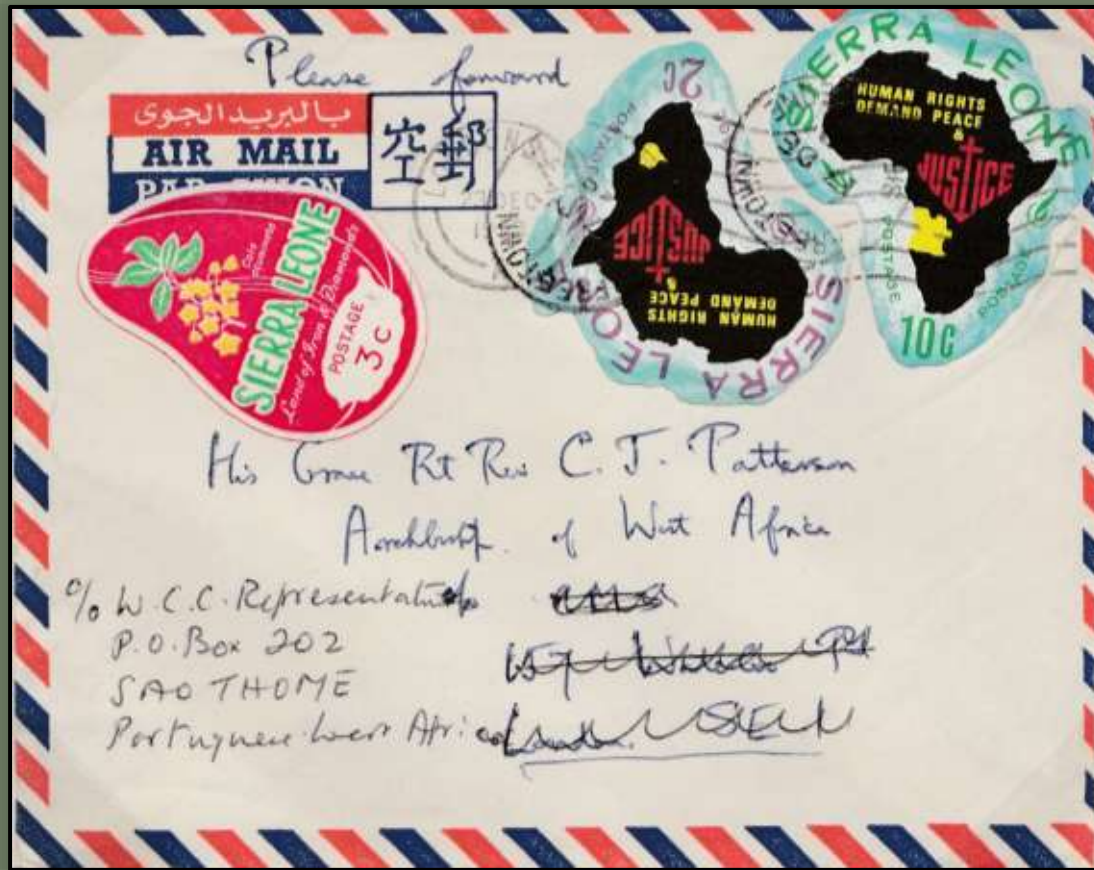 Please forward
بالبريد الجوى
AIR MAIL
PAR AVION
空郵
SIERRA LEONE
Land of Iron & Diamonds
POSTAGE
3c
2c
SIERRA LEONE
HUMAN RIGHTS
DEMAND PEACE
&
JUSTICE
SIERRA LEONE
HUMAN RIGHTS
DEMAND PEACE
&
JUSTICE
POSTAGE
POSTAGE
10c
FREETOWN
His Grace Rt Rev C. J. Patterson
Archbishop of West Africa
c/o W.C.C. Representative
P.O. Box 202
SAO THOME
Portuguese West Africa
London